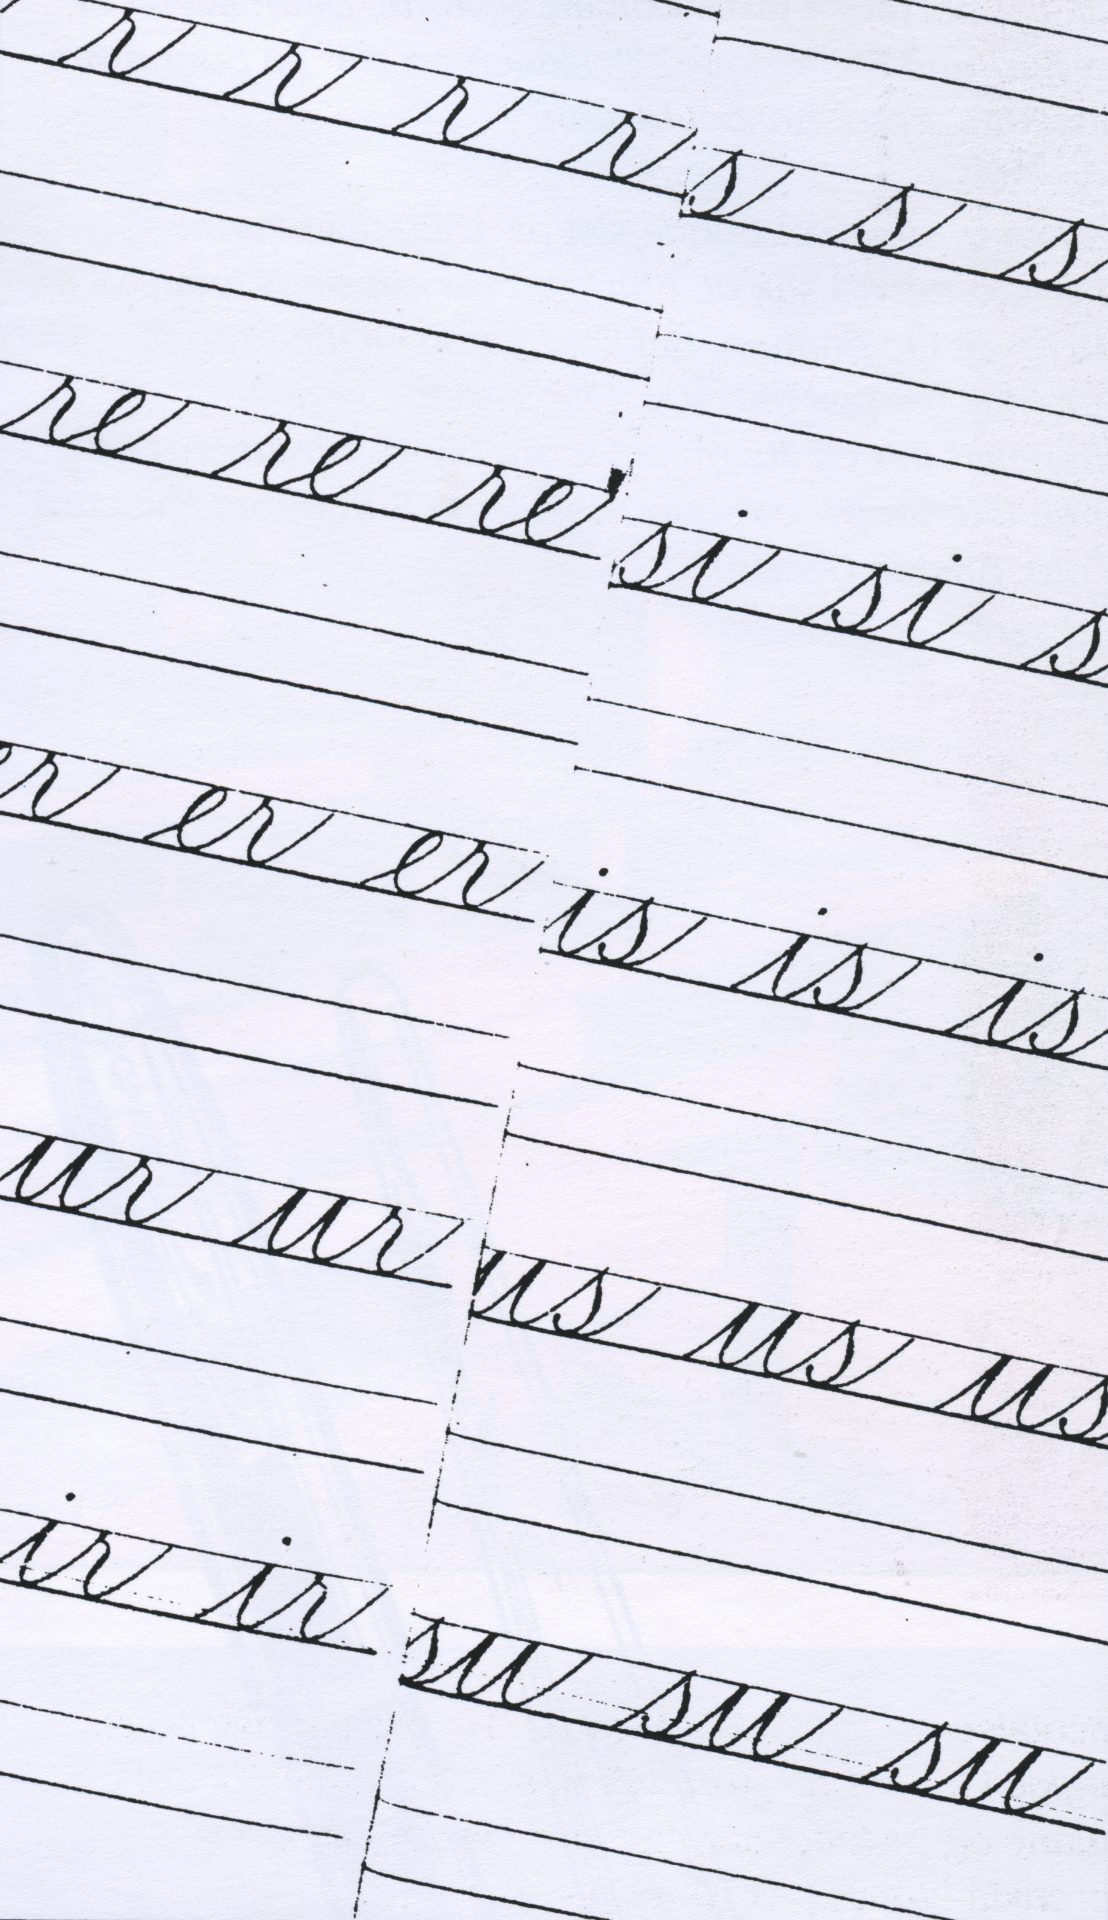 r r r r
re re re
er er er
ur ur
ir ir
s s s
si si s
is is is
us us us
su su su